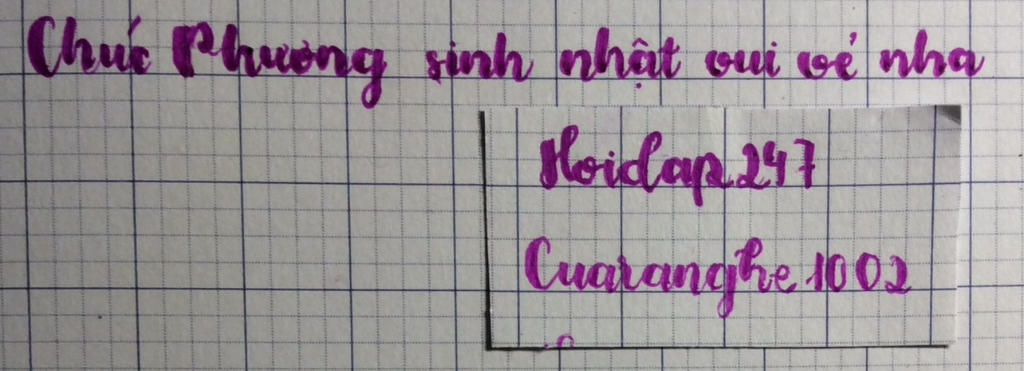 Chúc Phương sinh nhật vui vẻ nha
Hoidap247
Cuaranghe1002